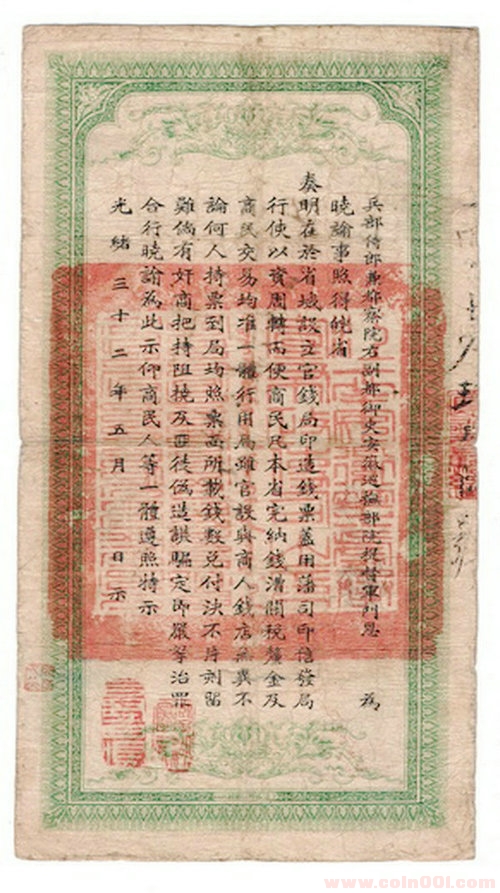 兵部侍郎兼都察院右副都御史安徽巡撫部院提督軍門恩 為
曉諭事照得皖省
奏明在於省城設立官錢局印造錢票蓋用藩司印信發局
行使以資周轉而便商民凡本省完納錢漕關稅釐金及
商民交易均准一體行用局雖官設與商人錢店無異不
論何人持票到局均照票面所載錢數兌付決不片刻留
難倘有奸商把持阻撓及匪徒偽造誆騙定即嚴拏治罪
合行曉諭為此示仰商民人等一體遵照特示
光緒三十二年五月 日示
www.coin001.com